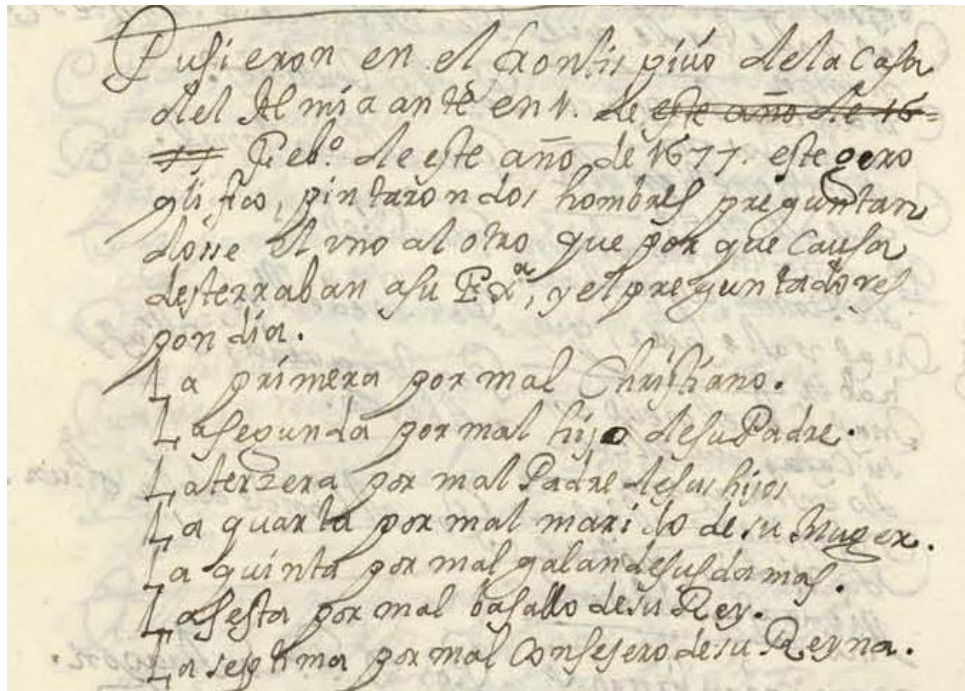 Pusieron en el frontis piçio dela Casa
del Almirante en 1. de este año de 16=
77 Feb.º de este año de 1677. este gero
glifico, pintaron dos hombres preguntan
dosse el vno al otro que por que causa
desterraban asu Ex.ª, y el preguntado res
pondia.
La primera por mal Christiano.
La segunda por mal hijo de su Padre.
La terzera por mal Padre de sus hijos
La quarta por mal marido de su Muger.
La quinta por mal galan de sus damas.
La sesta por mal basallo de su Rey.
La septima por mal Consejero de su Reyna.